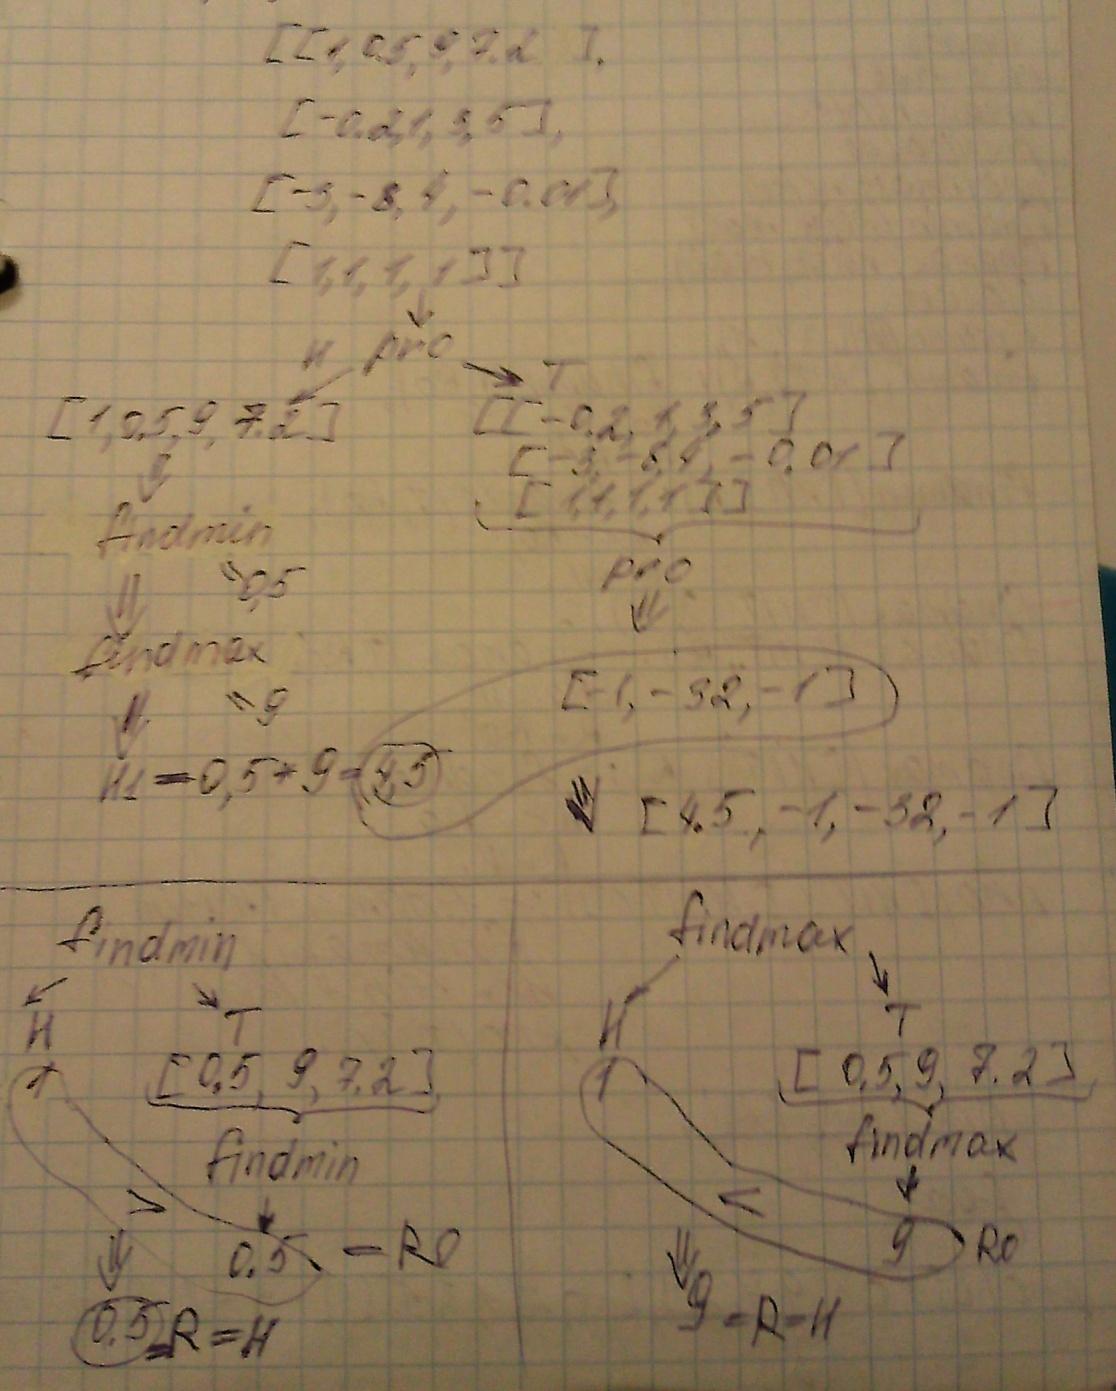 [[1, 0.5, 9, 7.2 ],
[-0.2, 1, 3, 5],
[-3, -8, 4, -0.01],
[1, 1, 1, 1]]
H pro T
[1, 0.5, 9, 7.2]
[[-0.2, 1, 3, 5]
[-3, -8, 4, -0.01]
[1, 1, 1, 1]]
findmin
0,5
pro
findmax
9
[-1, -32, -1]
H1 = 0,5 * 9 = 4,5
[4.5, -1, -32, -1]
findmin
H T
1 [0.5, 9, 7.2]
findmin
>
0.5 = R0
0.5 = R = H
findmax
H T
1 [0.5, 9, 7.2]
findmax
<
9 R0
9 = R = H